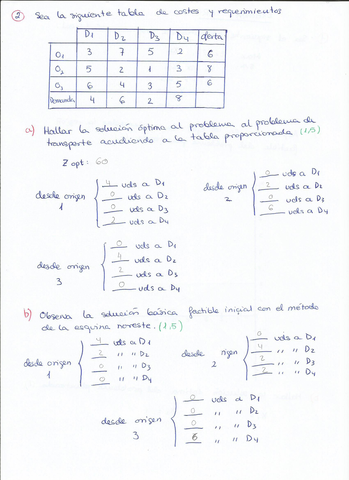 2) Sea la siguiente tabla de costes y requerimientos
D1 D2 D3 D4 oferta
O1 3 7 5 2 6
O2 5 2 1 3 8
O3 6 4 3 5 6
Demanda 4 6 2 8
a) Hallar la solución óptima al problema al problema de
transporte acudiendo a la tabla proporcionada (1,5)
Z opt: 60
desde origen 1
4 uds a D1
0 uds a D2
0 uds a D3
2 uds a D4
desde origen 2
0 uds a D1
2 uds a D2
0 uds a D3
6 uds a D4
desde origen 3
0 uds a D1
4 uds a D2
2 uds a D3
0 uds a D4
b) Observa la solución básica factible inicial con el método
de la esquina noreste. (1,5)
desde origen 1
4 uds a D1
2 " " D2
0 " " D3
0 " " D4
desde origen 2
0 uds a D1
4 " " D2
2 " " D3
2 " " D4
desde origen 3
0 uds a D1
0 " " D2
0 " " D3
6 " " D4